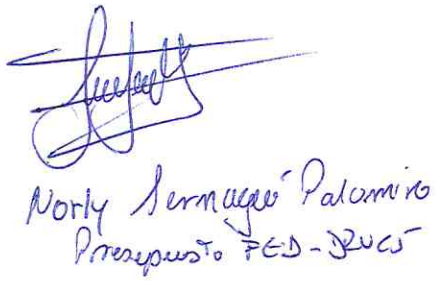 Norly Sernaqué Palomino
Presupuesto FED-